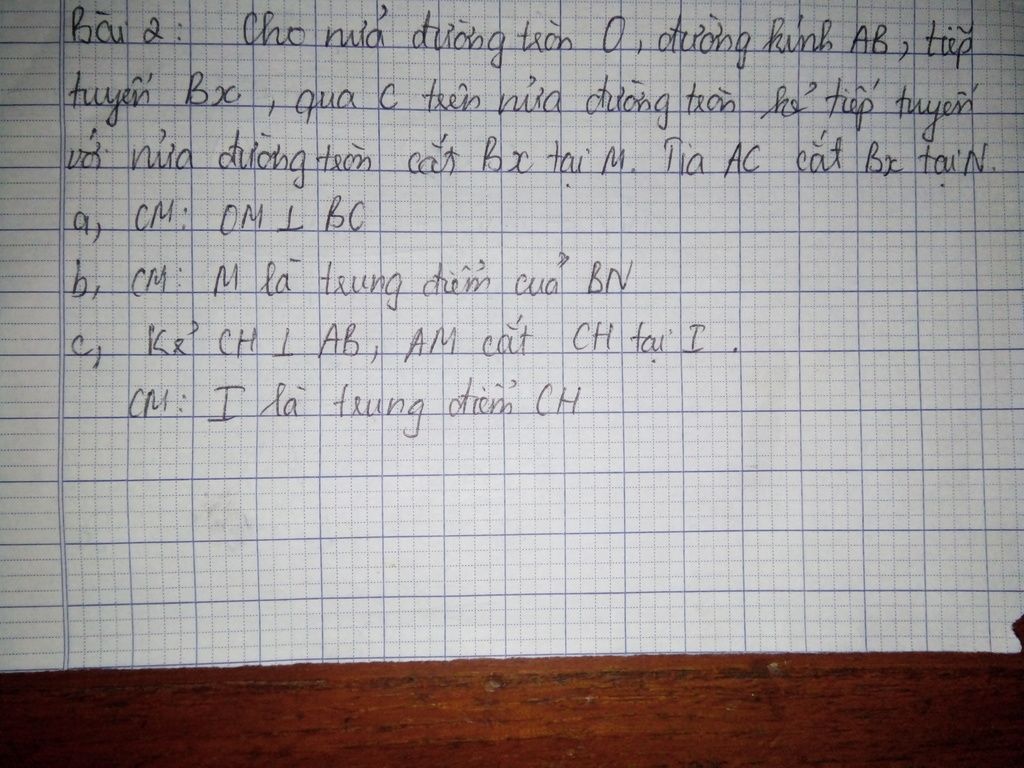 Bài 2: Cho nửa đường tròn O, đường kính AB, tiếp
tuyến Bx, qua C trên nửa đường tròn kẻ tiếp tuyến
với nửa đường tròn cắt Bx tại M. Tia AC cắt Bx tại N.
a, CM: OM ⊥ BC
b, CM: M là trung điểm của BN
c, Kẻ CH ⊥ AB, AM cắt CH tại I.
CM: I là trung điểm CH